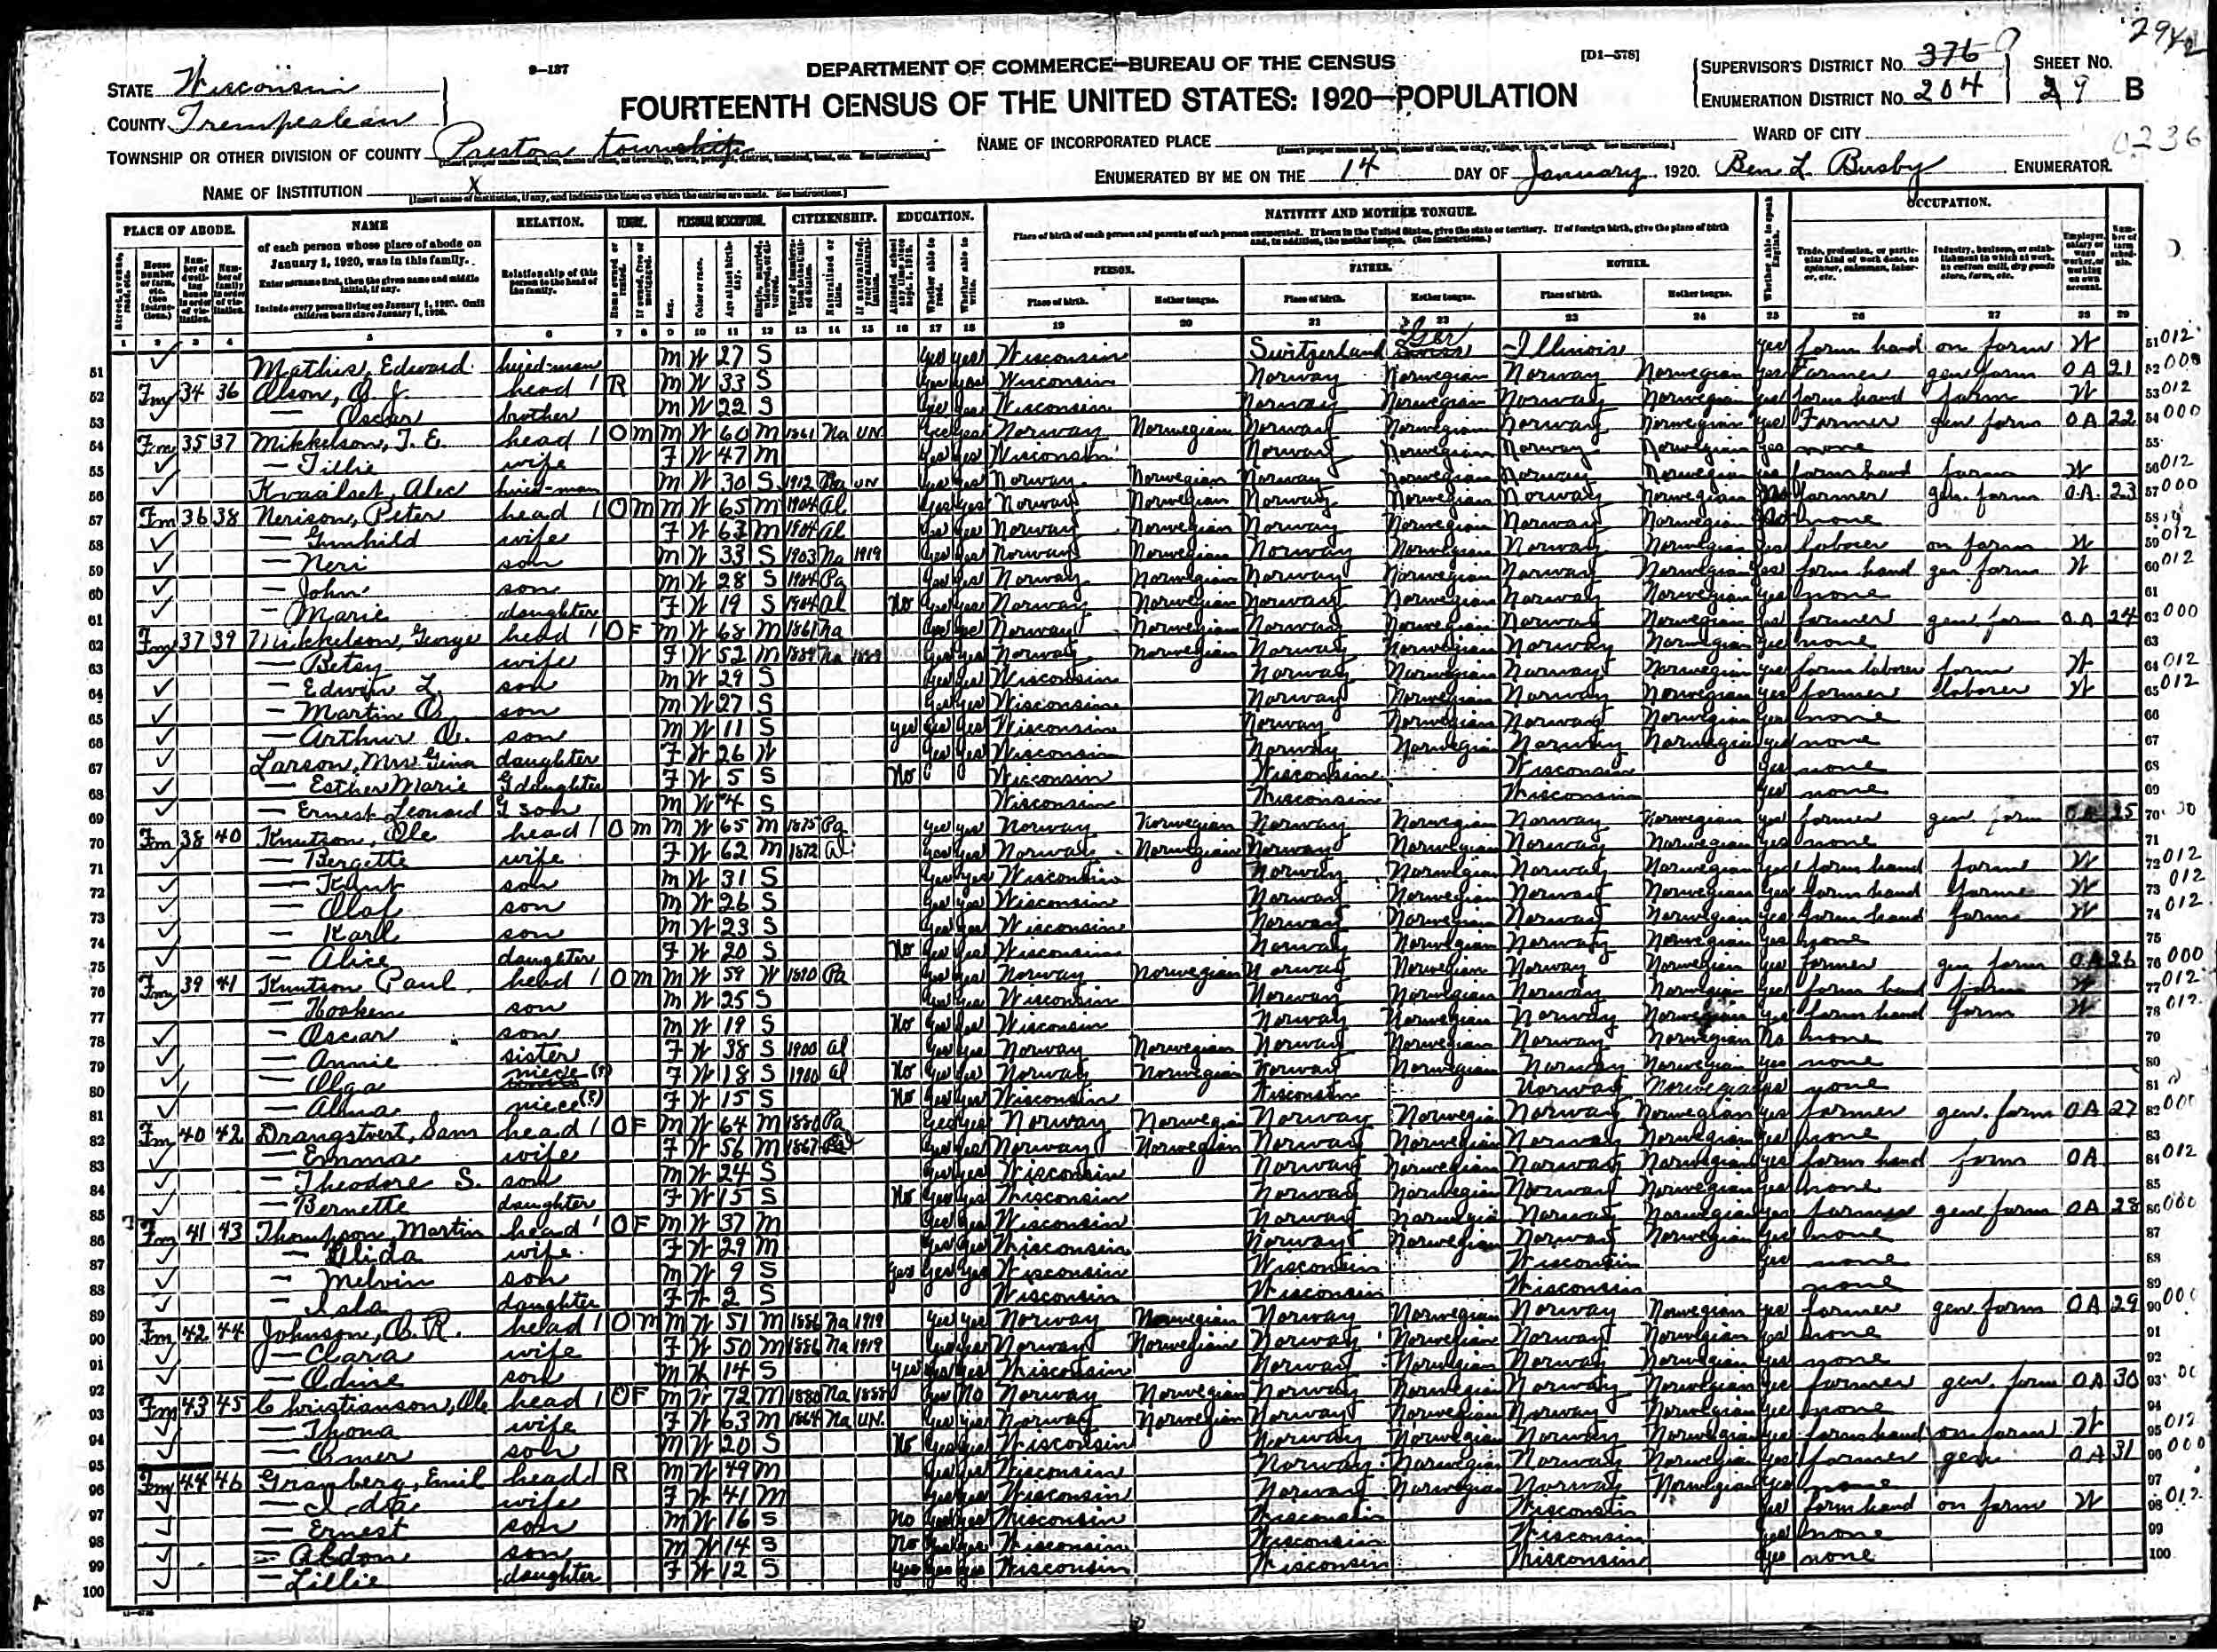 29 1/2
9-137
DEPARTMENT OF COMMERCE—BUREAU OF THE CENSUS
[D1-578]
STATE Wisconsin
SUPERVISOR'S DISTRICT No. 376
SHEET No.
FOURTEENTH CENSUS OF THE UNITED STATES: 1920—POPULATION
ENUMERATION DISTRICT No. 204
9 B
COUNTY Trempealeau
0236
TOWNSHIP OR OTHER DIVISION OF COUNTY Preston township
NAME OF INCORPORATED PLACE
WARD OF CITY
NAME OF INSTITUTION X
ENUMERATED BY ME ON THE 14 DAY OF January, 1920. Ben L. Busby ENUMERATOR.
PLACE OF ABODE. NAME RELATION. TENURE. PERSONAL DESCRIPTION. CITIZENSHIP. EDUCATION. NATIVITY AND MOTHER TONGUE. OCCUPATION.
of each person whose place of abode on January 1, 1920, was in this family.
Enter surname first, then the given name and middle initial, if any.
Include every person living on January 1, 1920. Omit children born since January 1, 1920.
Relationship of this person to the head of the family.
Place of birth of each person and parents of each person enumerated. If born in the United States, give the state or territory. If of foreign birth, give the place of birth and, in addition, the mother tongue. (See instructions.)
PERSON. FATHER. MOTHER.
Place of birth. Mother tongue. Place of birth. Mother tongue. Place of birth. Mother tongue.
1 2 3 4 5 6 7 8 9 10 11 12 13 14 15 16 17 18 19 20 21 22 23 24 25 26 27 28 29
51 Mathis, Edward hired-man M W 27 S yes yes Wisconsin Switzerland Ger Illinois yes farm hand on farm W 012
52 Fm 34 36 Olson, O. J. head 1 R M W 33 S yes yes Wisconsin Norway Norwegian Norway Norwegian yes Farmer gen farm OA 21 000
53 — Oscar brother M W 22 S yes yes Wisconsin Norway Norwegian Norway Norwegian yes farm hand farm W 012
54 Fm 35 37 Mikkelson, T. E. head 1 O M M W 60 M 1861 Na UN yes yes Norway Norwegian Norway Norwegian Norway Norwegian yes Farmer gen farm OA 22 000
55 — Tillie wife F W 47 M yes yes Wisconsin Norway Norwegian Norway Norwegian yes none
56 Alec hired-man M W 30 S 1912 Pa UN yes yes Norway Norwegian Norway Norwegian Norway Norwegian yes farm hand farm W 012
57 Fm 36 38 Nerison, Peter head 1 O M M W 65 M 1904 Al yes yes Norway Norwegian Norway Norwegian Norway Norwegian No farmer gen. farm O.A. 23 000
58 — Gunhild wife F W 63 M 1904 Al yes yes Norway Norwegian Norway Norwegian Norway Norwegian No none
59 — Neri son M W 33 S 1903 Na 1919 yes yes Norway Norwegian Norway Norwegian Norway Norwegian yes laborer on farm W 012
60 — John son M W 28 S 1904 Pa yes yes Norway Norwegian Norway Norwegian Norway Norwegian yes farm hand gen farm W 012
61 — Marie daughter F W 19 S 1904 Al No yes yes Norway Norwegian Norway Norwegian Norway Norwegian yes none
62 Fm 37 39 Mikkelson, George head 1 O F M W 68 M 1861 Na yes yes Norway Norwegian Norway Norwegian Norway Norwegian yes farmer gen farm OA 24 000
63 — Betsy wife F W 52 M Na yes yes Norway Norwegian Norway Norwegian Norway Norwegian yes none
64 — Edwin L. son M W 29 S yes yes Wisconsin Norway Norwegian Norway Norwegian yes farm laborer farm W 012
65 — Martin O. son M W 27 S yes yes Wisconsin Norway Norwegian Norway Norwegian yes farmer laborer W 012
66 — Arthur O. son M W 11 S yes yes yes Wisconsin Norway Norwegian Norway Norwegian yes none
67 Larson, Mrs Gina daughter F W 26 W yes yes Wisconsin Norway Norwegian Norway Norwegian yes none
68 — Esther Marie G daughter F W 5 S No Wisconsin Wisconsin Wisconsin yes none
69 — Ernest Leonard G son M W 4 S Wisconsin Wisconsin Wisconsin yes none
70 Fm 38 40 Knutson, Ole head 1 O M M W 65 M 1875 Pa yes yes Norway Norwegian Norway Norwegian Norway Norwegian yes farmer gen. farm OA 25
71 — Bergette wife F W 62 M 1872 Al yes yes Norway Norwegian Norway Norwegian Norway Norwegian yes none
72 — Knut son M W 31 S yes yes Wisconsin Norway Norwegian Norway Norwegian yes farm hand farm W 012
73 — Olaf son M W 26 S yes yes Wisconsin Norway Norwegian Norway Norwegian yes farm hand farm W 012
74 — Karl son M W 23 S yes yes Wisconsin Norway Norwegian Norway Norwegian yes farm hand farm W 012
75 — Alice daughter F W 20 S No yes yes Wisconsin Norway Norwegian Norway Norwegian yes none
76 Fm 39 41 Knutson Paul head 1 O M M W 59 W Pa yes yes Norway Norwegian Norway Norwegian Norway Norwegian yes farmer gen farm OA 26 000
77 — Hoaken son M W 25 S yes yes Wisconsin Norway Norwegian Norway Norwegian yes farm hand farm W 012
78 — Oscar son M W 19 S No yes yes Wisconsin Norway Norwegian Norway Norwegian yes farm hand farm W 012
79 — Annie sister F W 38 S 1900 Al yes yes Norway Norwegian Norway Norwegian Norway Norwegian No none
80 — Olga niece (?) F W 18 S 1900 Al No yes yes Norway Norwegian Norway Norwegian Norway Norwegian yes none
81 — Alma niece (?) F W 15 S No yes yes Wisconsin Wisconsin Norway Norwegian yes none
82 Fm 40 42 Drangstvert, Sam head 1 O F M W 64 M 1880 Pa yes yes Norway Norwegian Norway Norwegian Norway Norwegian yes farmer gen. farm OA 27 000
83 — Emma wife F W 56 M 1867 Pa yes yes Norway Norwegian Norway Norwegian Norway Norwegian yes none
84 — Theodore S. son M W 24 S yes yes Wisconsin Norway Norwegian Norway Norwegian yes farm hand farm OA 012
85 — Bernette daughter F W 15 S No yes yes Wisconsin Norway Norwegian Norway Norwegian yes none
86 Fm 41 43 Thompson, Martin head 1 O F M W 37 M yes yes Wisconsin Norway Norwegian Norway Norwegian yes farmer gen farm OA 28 000
87 — Elida wife F W 29 M yes yes Wisconsin Norway Norwegian Norway Norwegian yes none
88 — Melvin son M W 9 S yes yes yes Wisconsin Wisconsin Wisconsin yes none
89 — Isla daughter F W 2 S Wisconsin Wisconsin Wisconsin none
90 Fm 42 44 Johnson, O. R. head 1 O M M W 51 M 1886 Na 1919 yes yes Norway Norwegian Norway Norwegian Norway Norwegian yes farmer gen farm OA 29 000
91 — Clara wife F W 50 M 1886 Na 1919 yes yes Norway Norwegian Norway Norwegian Norway Norwegian yes none
92 — Odine son M W 14 S yes yes yes Wisconsin Norway Norwegian Norway Norwegian yes none
93 Fm 43 45 Christianson, Ole head 1 O F M W 72 M 1880 Na 1888 yes No Norway Norwegian Norway Norwegian Norway Norwegian yes farmer gen. farm OA 30
94 — Thona wife F W 63 M 1864 Na UN. yes yes Norway Norwegian Norway Norwegian Norway Norwegian yes none
95 — Omer son M W 20 S No yes yes Wisconsin Norway Norwegian Norway Norwegian yes farm hand on farm W 012
96 Fm 44 46 Granberg, Emil head 1 R M W 49 M yes yes Wisconsin Norway Norwegian Norway Norwegian yes farmer gen OA 31 000
97 — Ida wife F W 41 M yes yes Wisconsin Norway Norwegian Norway Norwegian yes none
98 — Ernest son M W 16 S No yes yes Wisconsin Wisconsin Wisconsin yes farm hand on farm W 012
99 — Abdon son M W 14 S No yes yes Wisconsin Wisconsin Wisconsin yes none
100 — Lillie daughter F W 12 S yes yes yes Wisconsin Wisconsin Wisconsin yes none